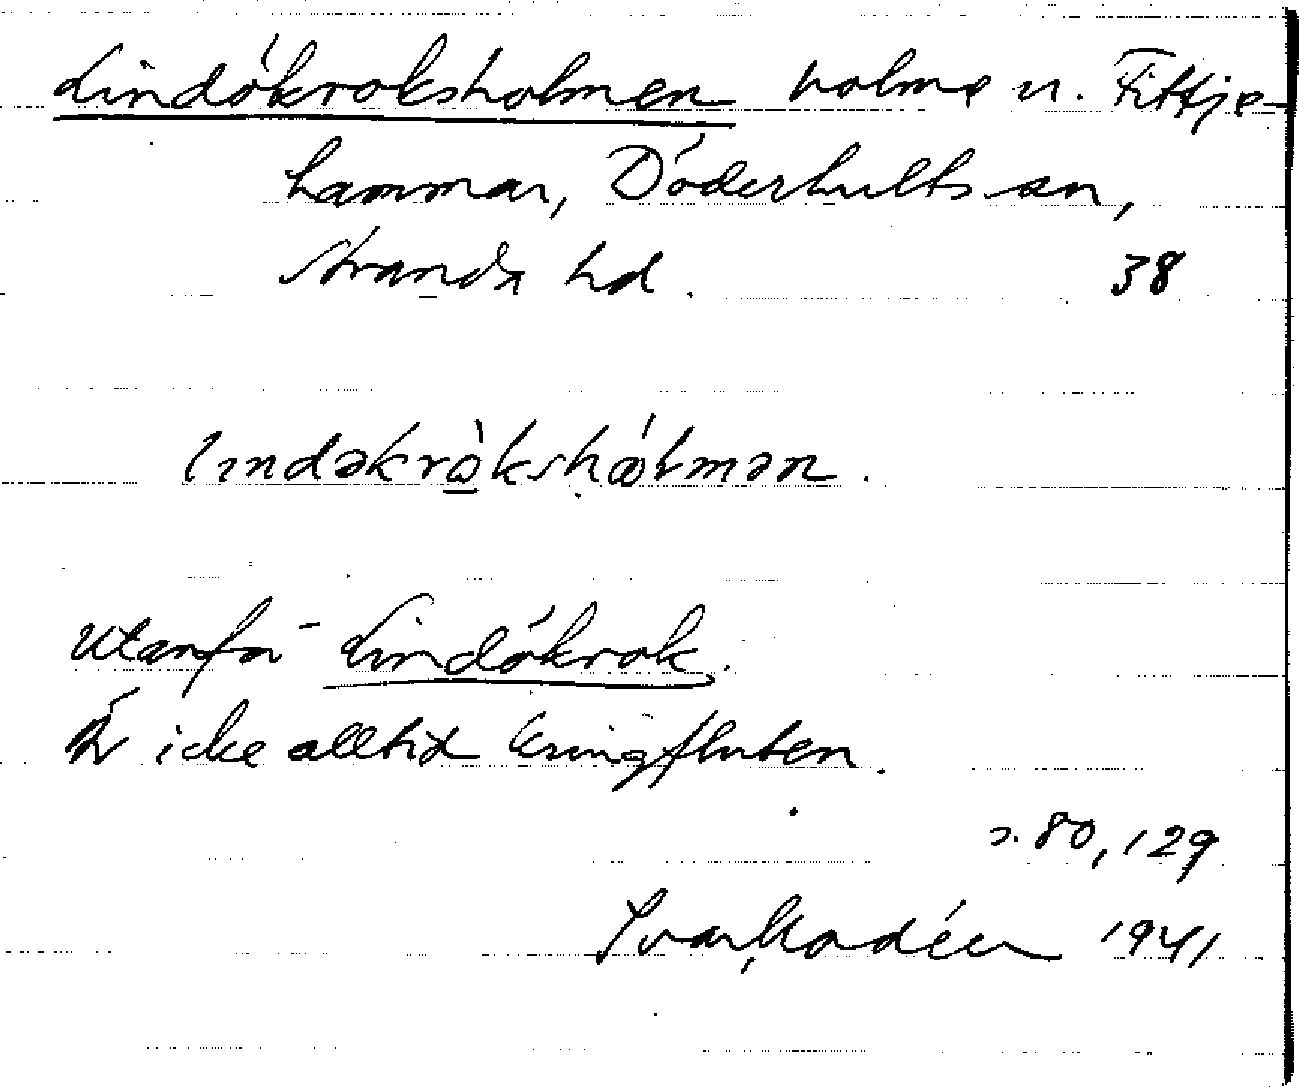 Lindökroksholmen holme u. Fittje-
hammar, Döderhults sn,
Stranda hd. 38
lındəkrὼkshɷ́lmən.
Utanför Lindökrok.
Är icke alltid kringfluten.
s. 80, 129
Ivar Modéer 1941